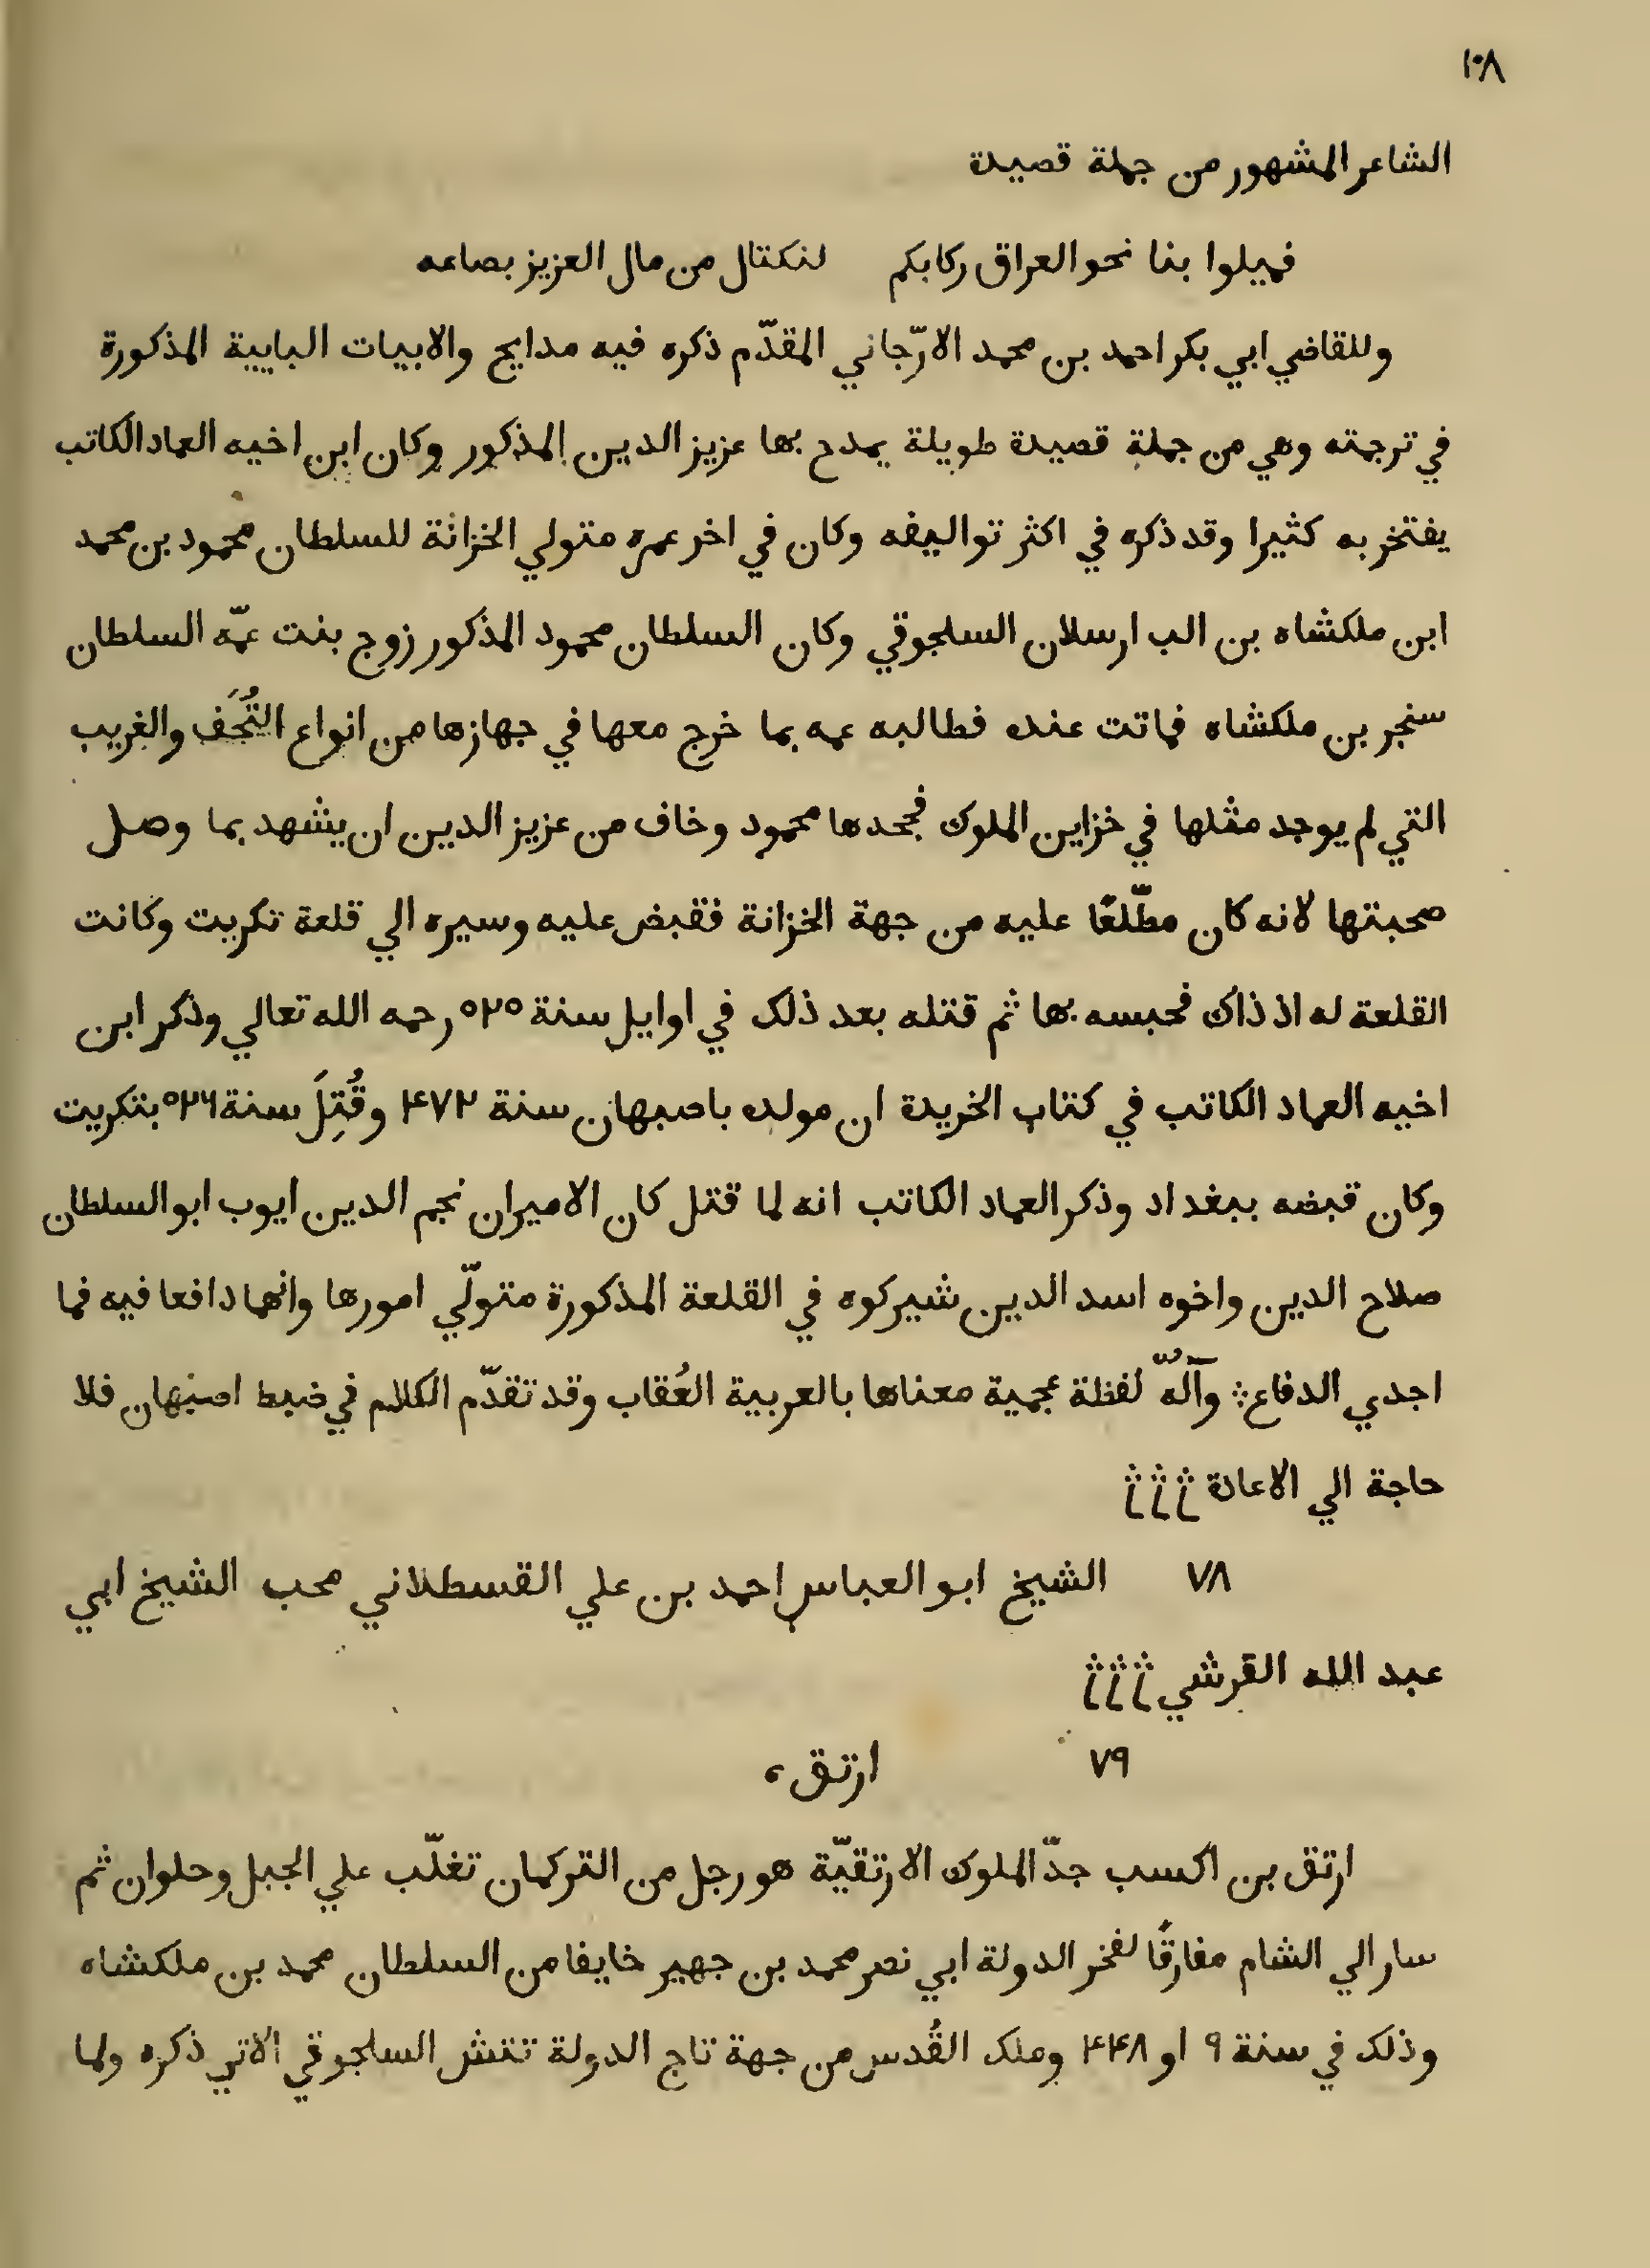 ١٠٨
الشاعر المشهور من جملة قصيدة
فميلوا بنا نحو العراق ركابكم لنكتال من مال العزيز بصاعه
وللقاضي ابي بكر احمد بن محمد الارّجاني المقدّم ذكره فيه مدايح والابيات البايية المذكورة
في ترجمته وهي من جملة قصيدة طويلة يمدح بها عزيز الدين المذكور وكان ابن اخيه العماد الكاتب
يفتخر به كثيرا وقد ذكره في اكثر تواليفه وكان في اخر عمره متولي الخزانة للسلطان محمود بن محمد
ابن ملكشاه بن الب ارسلان السلجوقي وكان السلطان محمود المذكور زوج بنت عمّه السلطان
سنجر بن ملكشاه فماتت عنده فطالبه عمه بما خرج معها في جهازها من انواع التُحَف والغريب
التي لم يوجد مثلها في خزاين الملوك فجحدها محمود وخاف من عزيز الدين ان يشهد بما وصل
صحبتها لانه كان مطّلعًا عليه من جهة الخزانة فقبض عليه وسيره الي قلعة تكريت وكانت
القلعة له اذ ذاك فحبسه بها ثم قتله بعد ذلك في اوايل سنة ٥٢٥ رحمه الله تعالي وذكر ابن
اخيه العماد الكاتب في كتاب الخريدة ان مولده باصبهان سنة ٤٧٢ وقُتِلَ سنة ٥٢٦ بتكريت
وكان قبضه ببغداد وذكر العماد الكاتب انه لما قتل كان الاميران نجم الدين ايوب ابو السلطان
صلاح الدين واخوه اسد الدين شيركوه في القلعة المذكورة متولّي امورها وانهما دافعا فيه فما
اجدي الدفاع ؞ وآلُهّ لفظة عجمية معناها بالعربية العُقاب وقد تقدّم الكلام في ضبط اصبهان فلا
حاجة الي الاعادة
٧٨ الشيخ ابو العباس احمد بن علي القسطلاني محب الشيخ ابي
عبد الله القرشي
٧٩ ارتق ،
ارتق بن اكسب جدّ الملوك الارتقيّة هو رجل من التركمان تغلّب علي الجبل وحلوان ثم
سار الي الشام مفارقًا لفخر الدولة ابي نصر محمد بن جهير خايفا من السلطان محمد بن ملكشاه
وذلك في سنة ٩ او ٤٤٨ وملك القُدس من جهة تاج الدولة تتش السلجوقي الاتي ذكره ولما